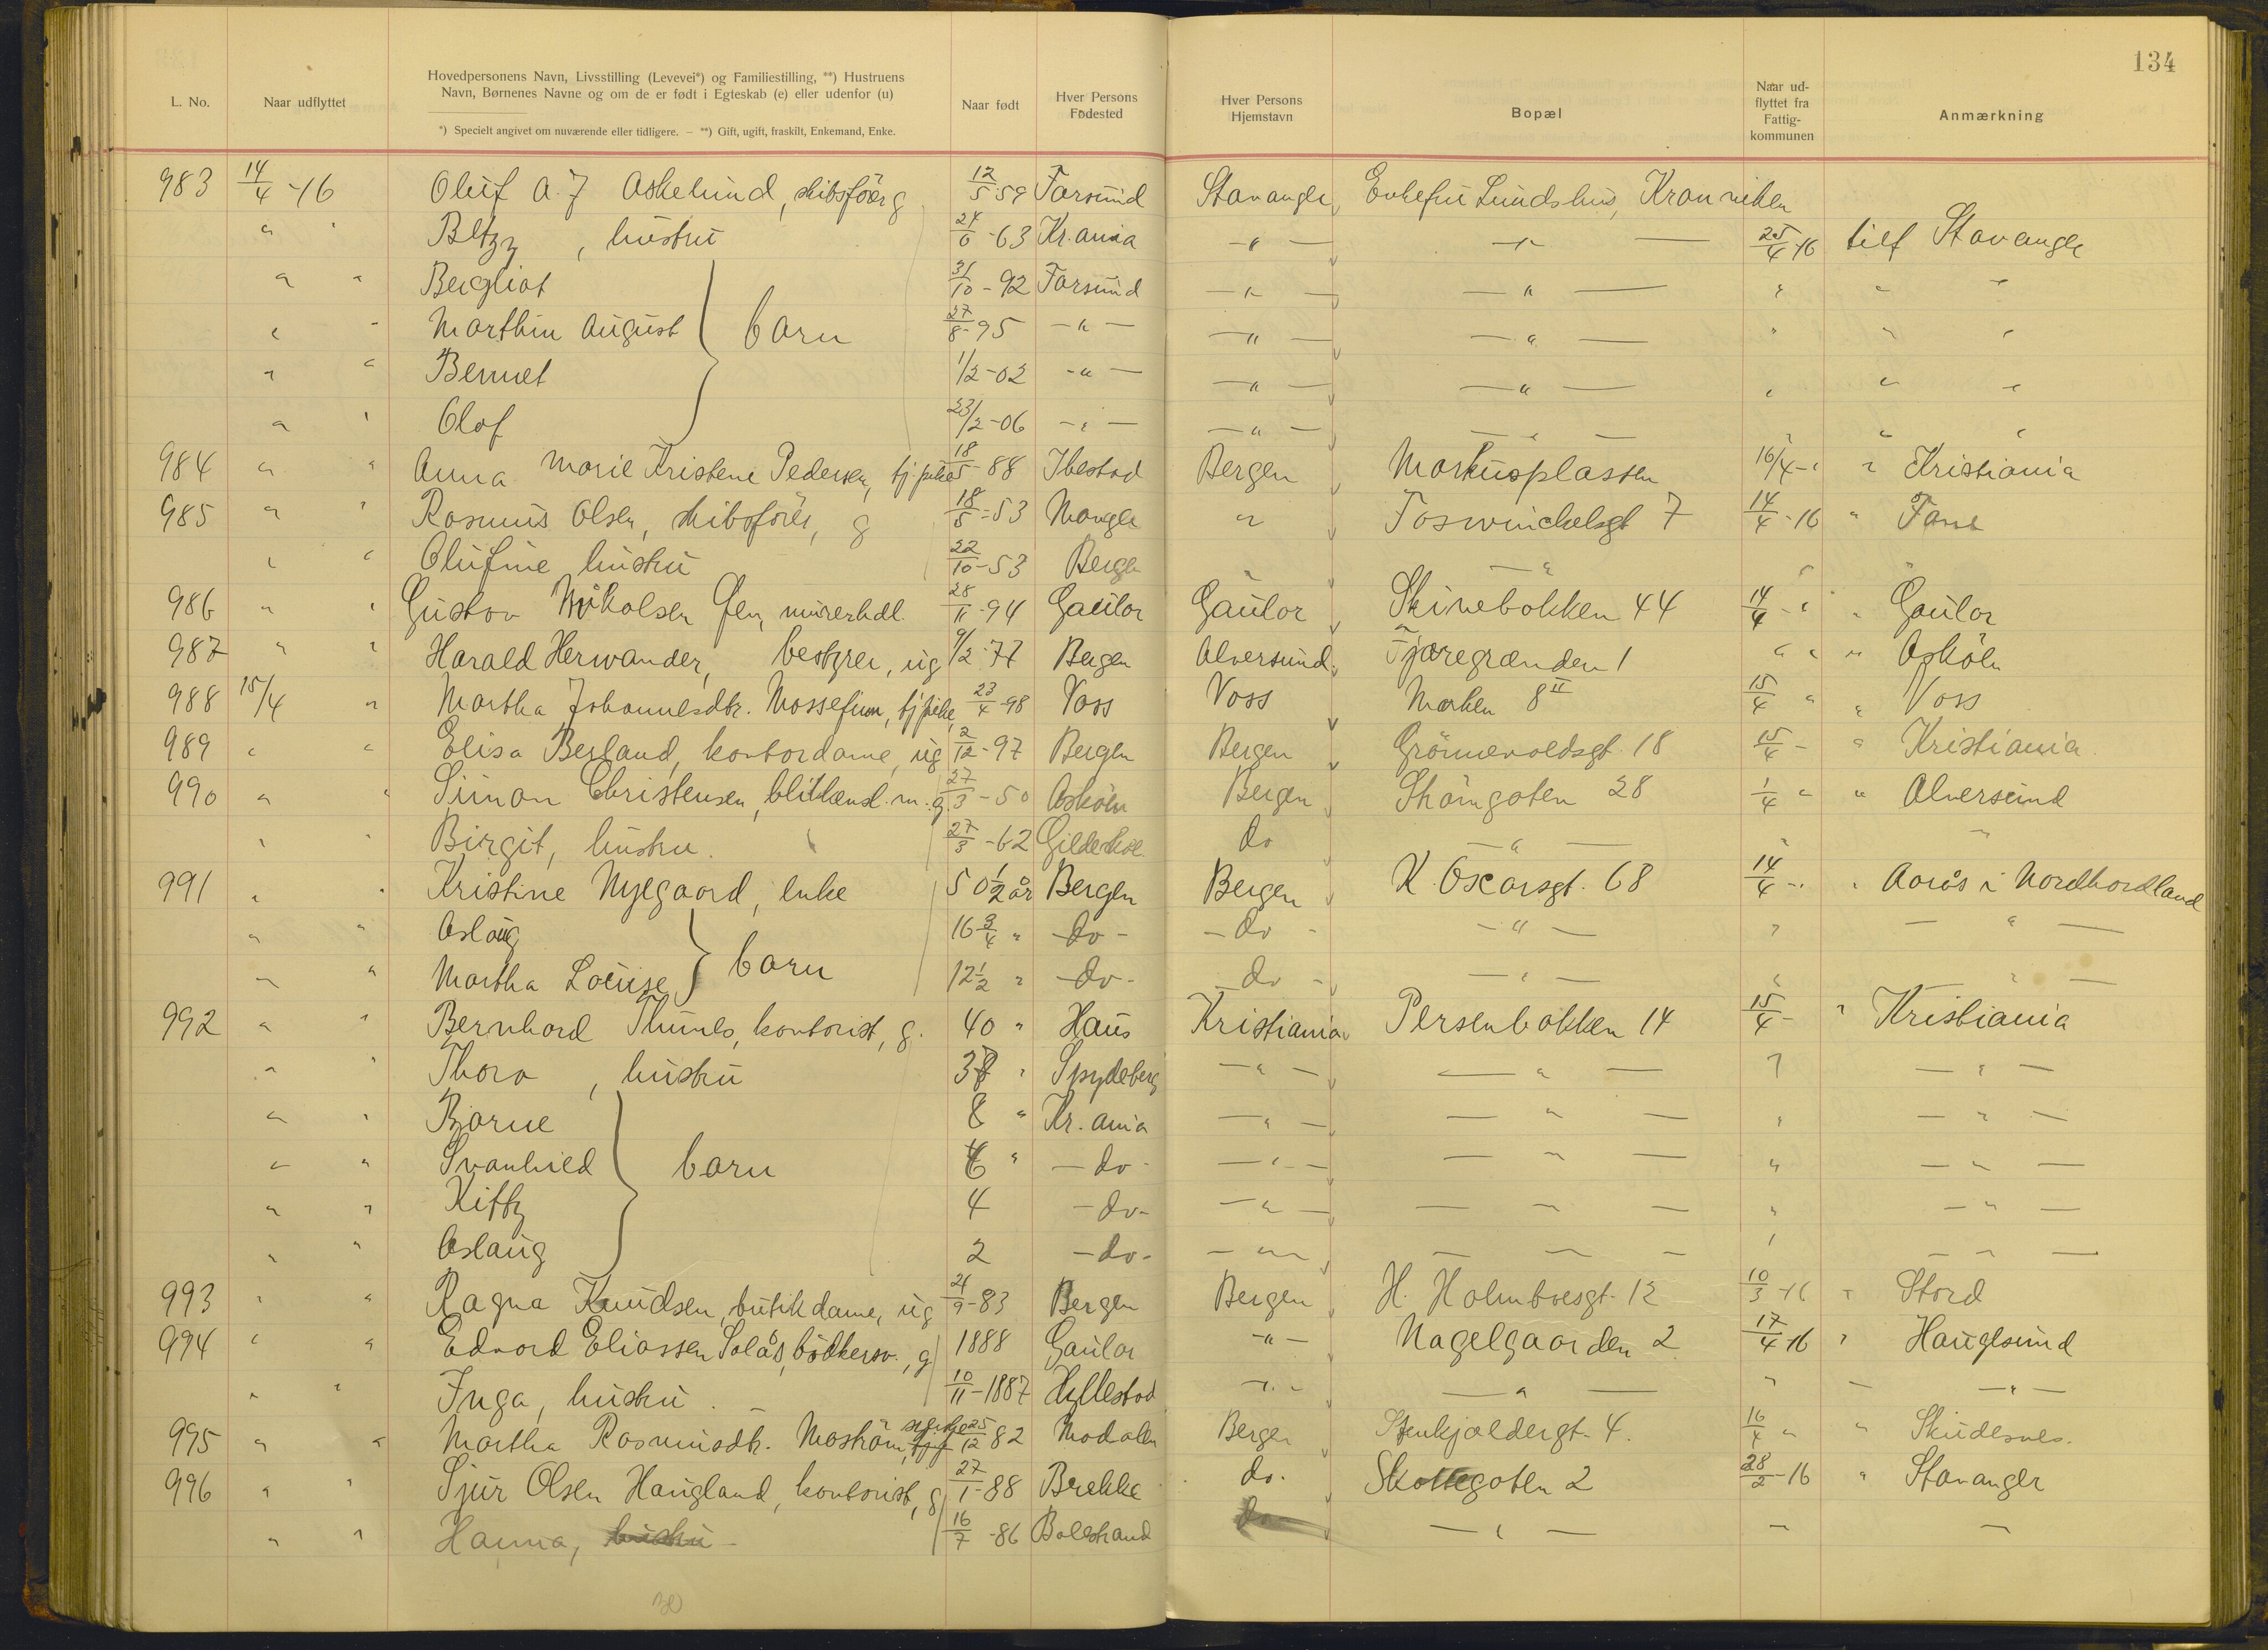 134
L. No.
Naar udflyttet
Hovedpersonens Navn, Livsstilling (Levevei*) og Familiestilling, **) Hustruens
Navn, Børnenes Navne og om de er født i Egteskab (e) eller udenfor (u)
*) Specielt angivet om nuværende eller tidligere. — **) Gift, ugift, fraskilt, Enkemand, Enke.
Naar født
Hver Persons
Fødested
Hver Persons
Hjemstavn
Bopæl
Naar ud-
flyttet fra
Fattig-
kommunen
Anmærkning
983 14/4 -16 Oluf A. J Askelund, skibsförer g 12/5 59 Farsund Stavanger Enkefru Lundshus,
" " Betzy, hustru 24/6 -63 Kr.ania -"- -"- 25/4 -16 tilf Stavanger
" " Bergliot 31/10 - 92 Farsund -"- -"- " " "
" " Marthin August } barn 27/8 - 95 -"- -"- -"- " " "
" " Bennet 1/2 -02 -"- -"- -"- " " "
" " Olaf 23/2 -06 -"- -"- -"- " " "
984 " " Anna Marie Kristene Pedersen, tj.pike 18/5 - 88 Ibestad Bergen Markusplassen 16/4 - " " Kristiania
985 " " Rasmus Olsen, skibsförer, g 18/5 - 53 Manger " Foswinckelsgt 7 14/4 - 16 " Fane
" " Olufine hustru 22/10 - 53 Bergen " -"- " "
986 " " Gustav Mikalsen murerhdl. 28/11 - 94 Gaular Gaular Skivebakken 44 14/4 - " " Gaular
987 " " Harald Herwander, bestyrer, ug 9/2 - 77 Bergen Alversund Tjæregrænden 1 " " " Asköen
988 15/4 " Martha Johannesdtr. Mossefinn, tj pike 23/4 -98 Voss Voss Marken 8 II 15/4 " " Voss
989 " " Elisa Berland, kontordame, ug 2/12 - 97 Bergen Bergen Grönnevoldsgt. 18 15/4 - " Kristiania
990 " " Simon Christensen, m. g. 27/3 - 50 Asköen Bergen Strömgaten 28 1/4 " " Alversund
" " Birgit, hustru. 27/3 - 62 do -"- " "
991 " " Kristine Nyegaard, enke 50 1/2 år Bergen Bergen K. Oscarsgt. 68 14/4 - " " Aarås i Nordhordland
" " Aslaug 16 3/4 " -do- -do- -"- " -"-
" " Martha Louise } barn 12 1/2 " -do- do -"- " -"-
992 " " Bernhard Thunes, kontorist, g. 40 " Haus Kristiania Persenbakken 14 15/4 - " Kristiania
" " Thora, hustru 38 " Spydeberg -"- -"- " -"-
" " Bjarne 8 " Kr. ania -"- -"- " -"-
" " Svanhild } barn 6 " -do- -"- -"- " -"-
" " Kitty 4 -do- -"- -"- " -"-
" " Aslaug 2 -do- -"- -"- " -"-
993 " " Ragna Knudsen, butikdame, ug 21/9 - 83 Bergen Bergen H. Holmboesgt. 12 10/3 -16 " Stord
994 " " Edvard Eliassen Solås, bödkersv., g 1888 Gaular -"- Nagelgaarden 2 17/4 16 " Haugesund
" " Inga, hustru. 10/11 - 1887 Hyllestad -"- -"- " - -"-
995 " " Martha Rasmusdtr. 25/12 82 Modalen Bergen Stenkjældergt. 4. 16/4 " " Skudesnes.
996 " " Sjur Olsen Haugland, kontorist, g 27/1 - 88 Brekke do. Skottegaten 2 28/2 - 16 " Stavanger
" " Hanna, hustru 16/7 - 86 Balestrand do -"- - -
30